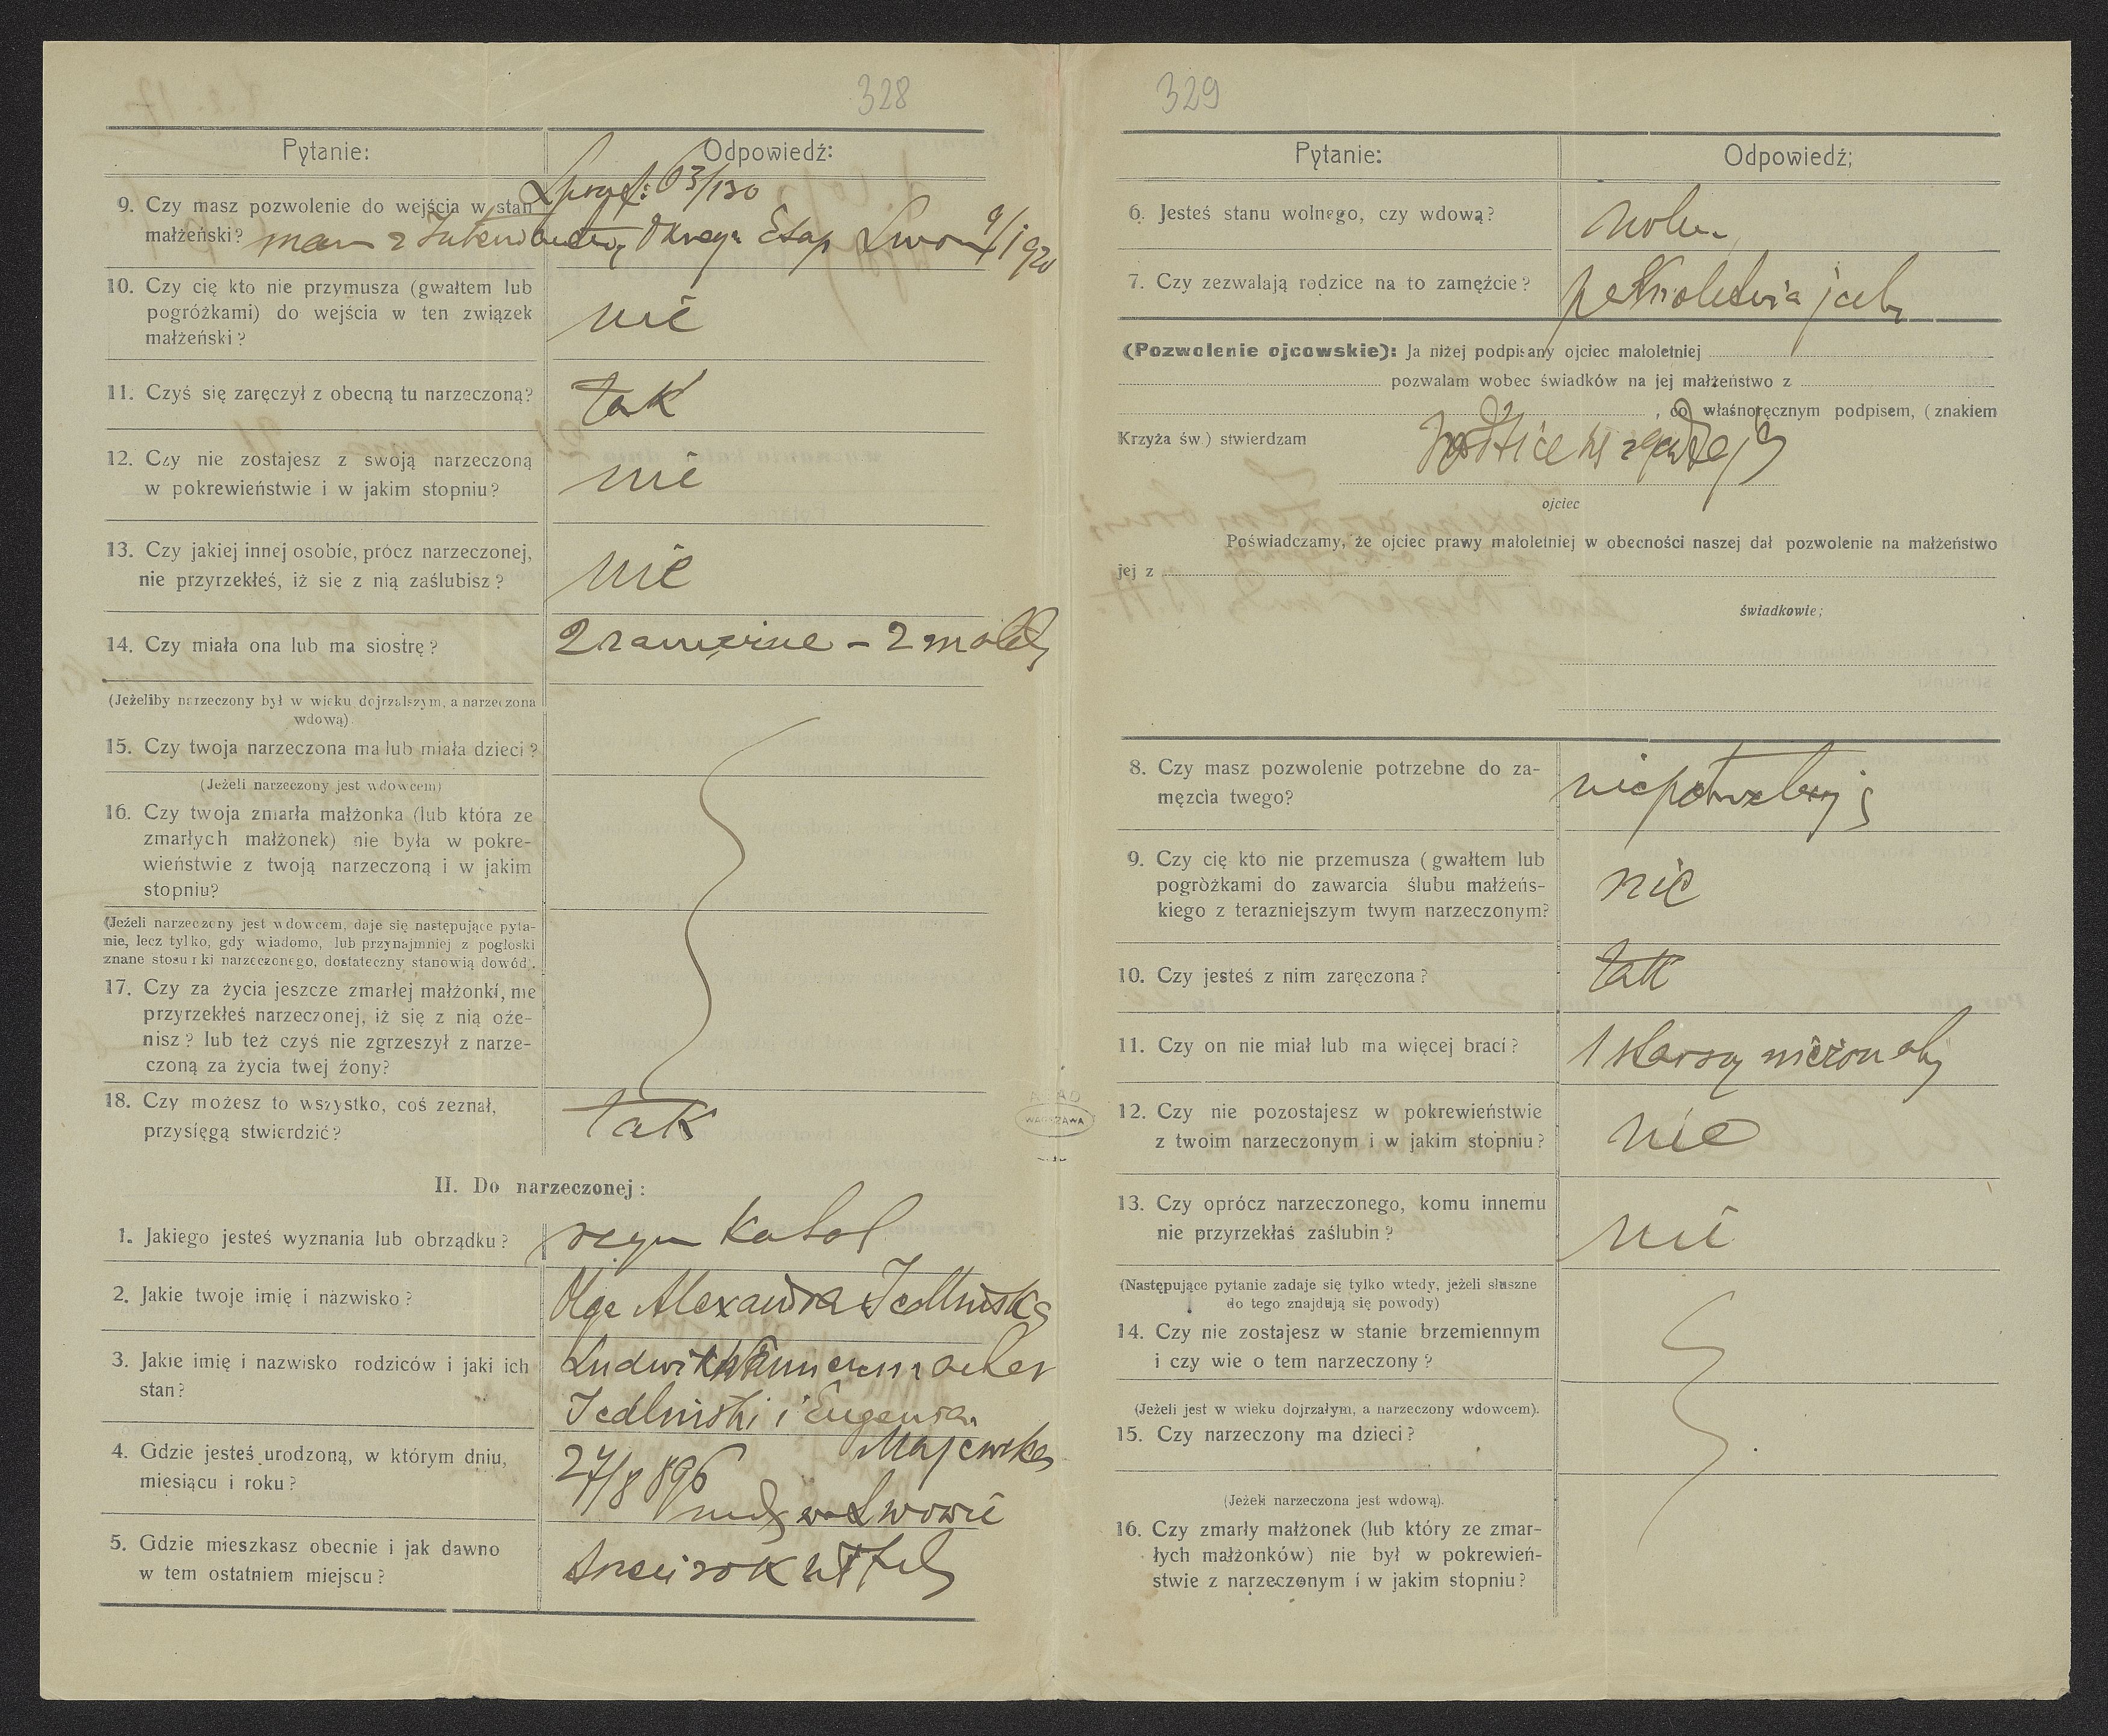 328
Pytanie:
Odpowiedź:
L prez: 63/130
9. Czy masz pozwolenie do wejścia w stan
małżeński? mam z Intendantury Okręgu Etap Lwow 9/1 920
10. Czy cię kto nie przymusza (gwałtem lub
pogróżkami) do wejścia w ten związek
małżeński?
nie
11. Czyś się zaręczył z obecną tu narzeczoną?
tak
12. Czy nie zostajesz z swoją narzeczoną
w pokrewieństwie i w jakim stopniu?
nie
13. Czy jakiej innej osobie, prócz narzeczonej,
nie przyrzekłeś, iż się z nią zaślubisz?
nie
14. Czy miała ona lub ma siostrę?
2 zamężne – 2 
(Jeżeliby narzeczony był w wieku dojrzalszym, a narzeczona
wdową).
15. Czy twoja narzeczona ma lub miała dzieci?
(Jeżeli narzeczony jest wdowcem)
16. Czy twoja zmarła małżonka (lub która ze
zmarłych małżonek) nie była w pokre-
wieństwie z twoją narzeczoną i w jakim
stopniu?
(Jeżeli narzeczony jest wdowcem, daje się następujące pyta-
nie, lecz tylko, gdy wiadomo, lub przynajmniej z pogłoski
znane stosunki narzeczonego, dostateczny stanowią dowód).
17. Czy za życia jeszcze zmarłej małżonki, nie
przyrzekłeś narzeczonej, iż się z nią oże-
nisz? lub też czyś nie zgrzeszył z narze-
czoną za życia twej żony?
18. Czy możesz to wszystko, coś zeznał,
przysięgą stwierdzić?
tak
II. Do narzeczonej:
1. Jakiego jesteś wyznania lub obrządku?
rzym katol
2. Jakie twoje imię i nazwisko?
Olga Alexandra Jedlińska
3. Jakie imię i nazwisko rodziców i jaki ich
stan?
Ludwik
Jedliński i Eugenia
Majewska
4. Gdzie jesteś urodzoną, w którym dniu,
miesiącu i roku?
27/8 896
we Lwowie
5. Gdzie mieszkasz obecnie i jak dawno
w tem ostatniem miejscu?
trzeci rok
AGAD
WARSZAWA
329
Pytanie:
Odpowiedź;
6. Jesteś stanu wolnego, czy wdową?
wolna
7. Czy zezwalają rodzice na to zamęźcie?
pełnoletnia
(Pozwolenie ojcowskie): Ja niżej podpisany ojciec małoletniej
pozwalam wobec świadków na jej małżeństwo z
, co własnoręcznym podpisem, (znakiem
Krzyża św.) stwierdzam
ojciec
Poświadczamy, że ojciec prawy małoletniej w obecności naszej dał pozwolenie na małżeństwo
jej z
świadkowie;
8. Czy masz pozwolenie potrzebne do za-
męzcia twego?
niepotrzebuję
9. Czy cię kto nie przemusza (gwałtem lub
pogróżkami do zawarcia ślubu małżeńs-
kiego z terazniejszym twym narzeczonym?
nie
10. Czy jesteś z nim zaręczona?
tak
11. Czy on nie miał lub ma więcej braci?
1 starszy nieżonaty
12. Czy nie pozostajesz w pokrewieństwie
z twoim narzeczonym i w jakim stopniu?
nie
13. Czy oprócz narzeczonego, komu innemu
nie przyrzekłaś zaślubin?
nie
(Następujące pytanie zadaje się tylko wtedy, jeżeli słuszne
do tego znajdują się powody)
14. Czy nie zostajesz w stanie brzemiennym
i czy wie o tem narzeczony?
(Jeżeli jest w wieku dojrzałym, a narzeczony wdowcem).
15. Czy narzeczony ma dzieci?
(Jeżeli narzeczona jest wdową).
16. Czy zmarły małżonek (lub który ze zmar-
łych małżonków) nie był w pokrewień-
stwie z narzeczonym i w jakim stopniu?